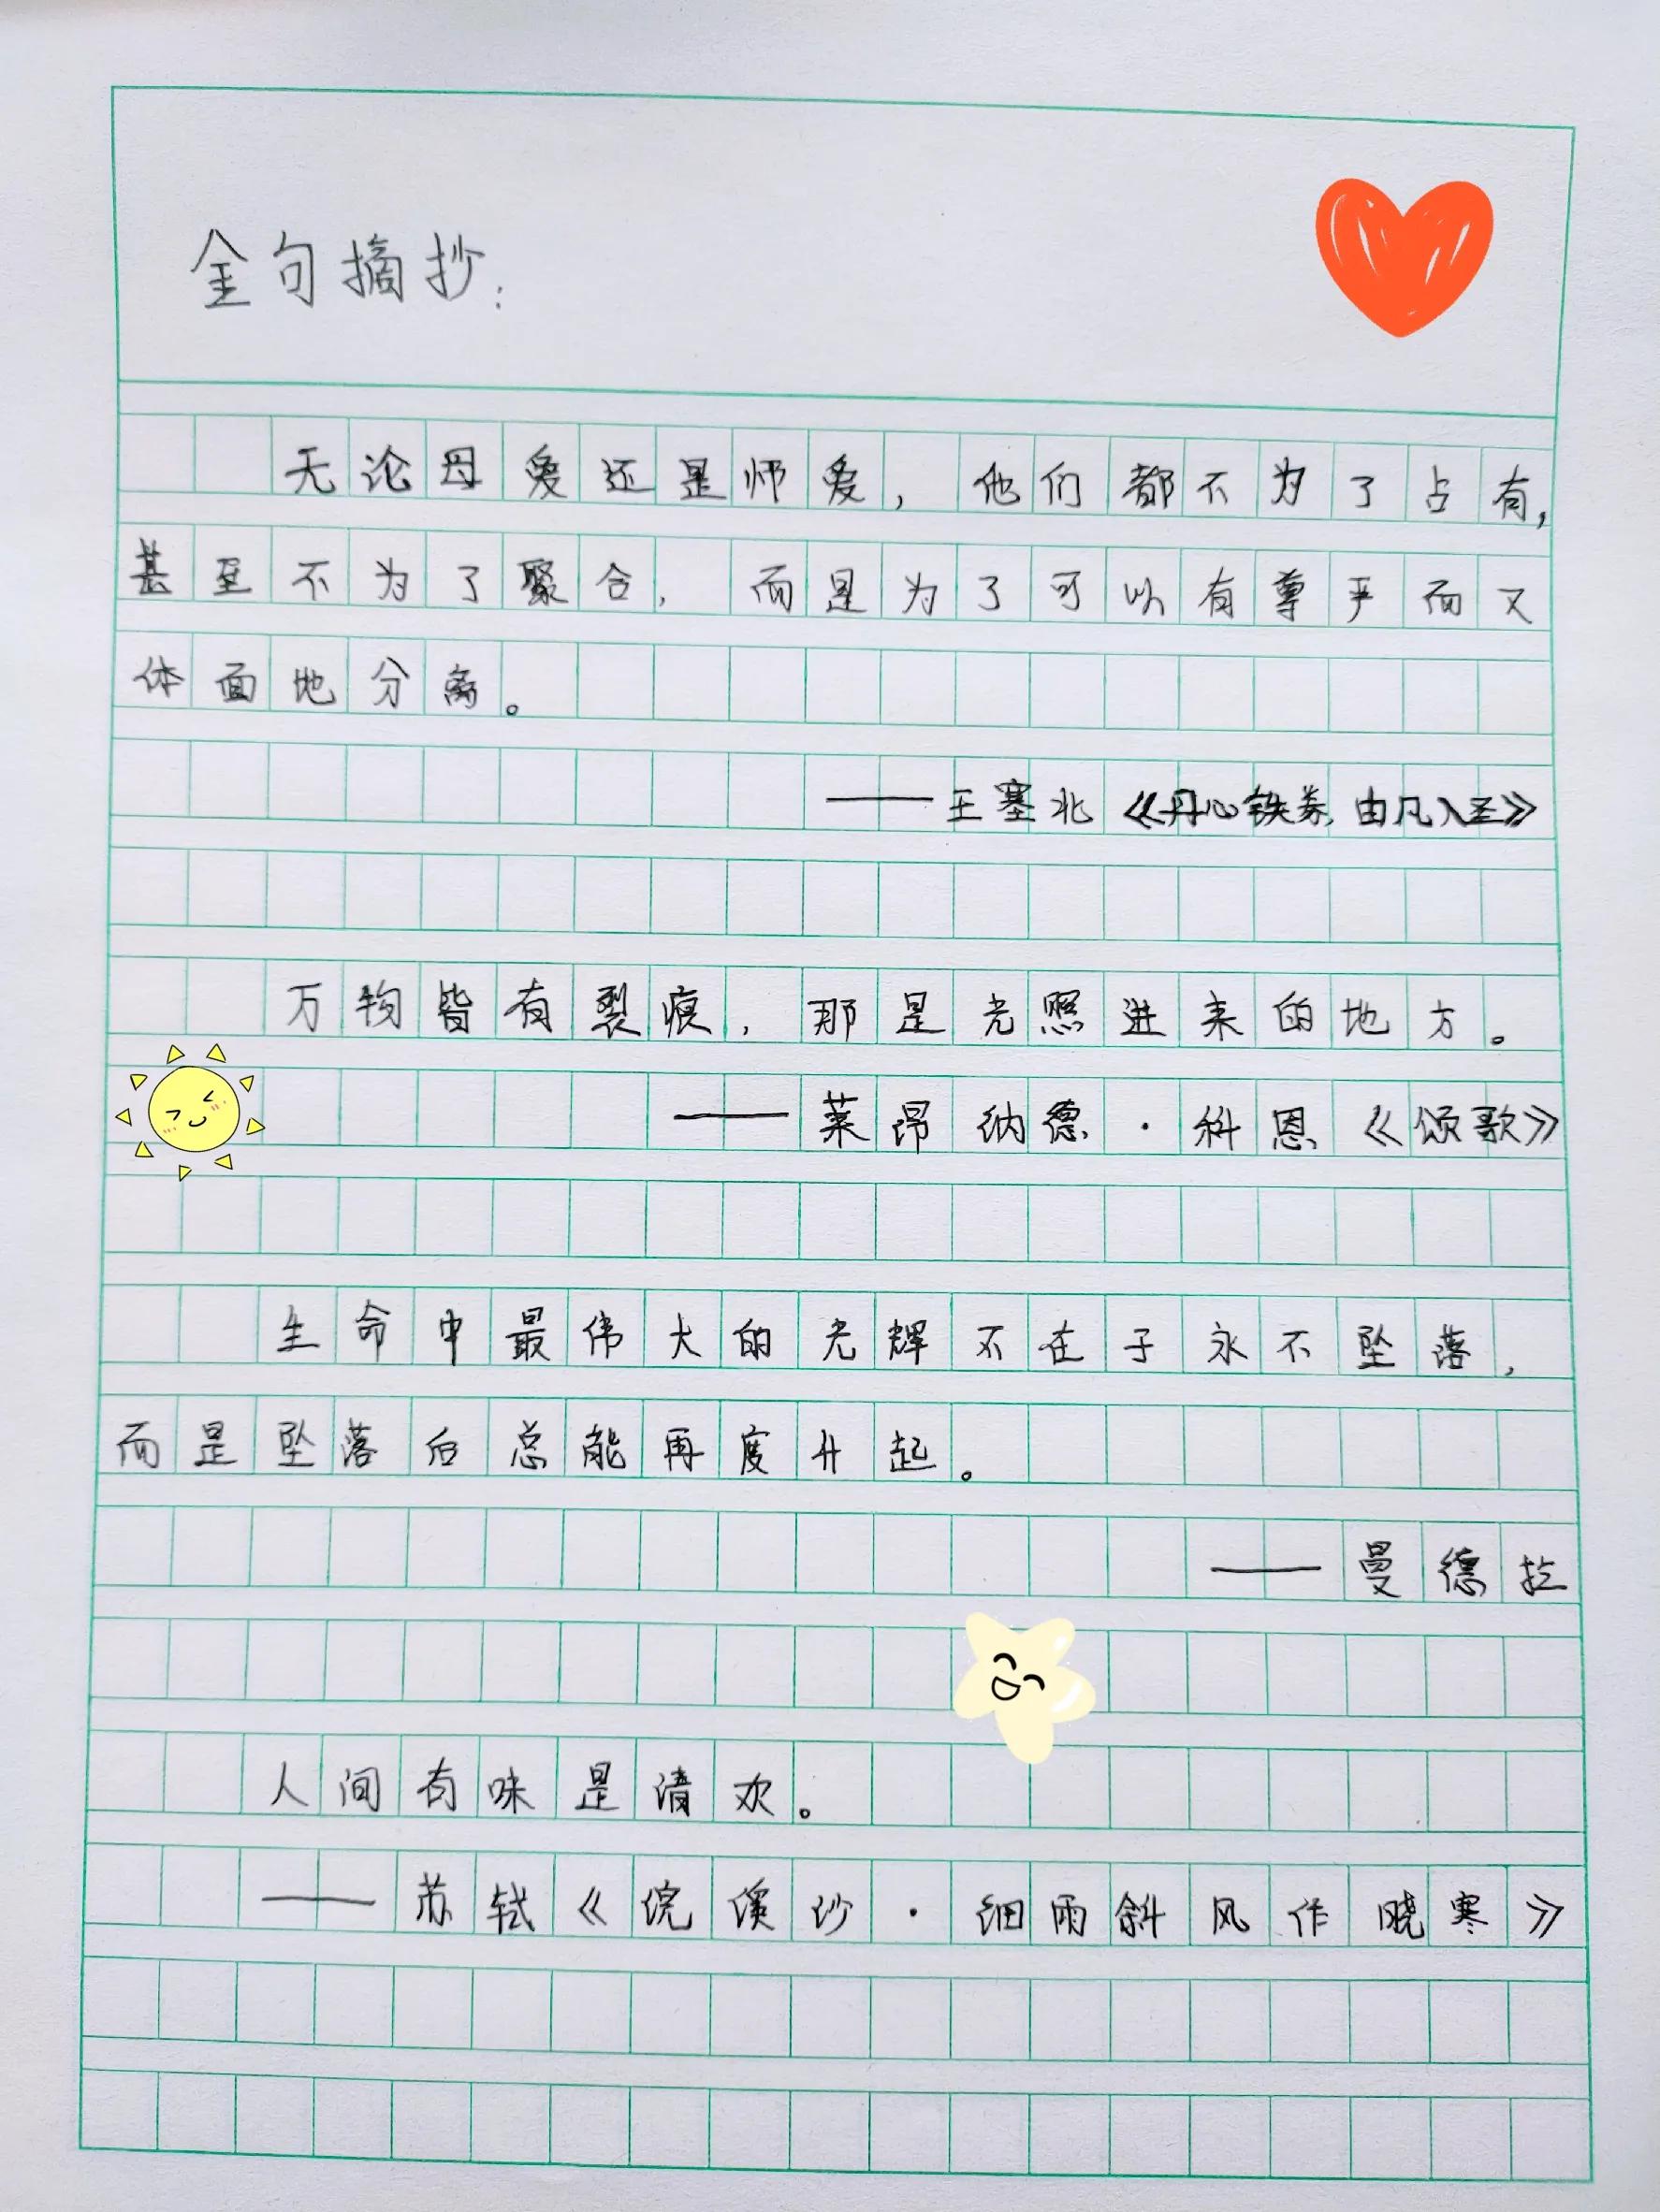 金句摘抄:
无论母爱还是师爱，他们都不为了占有，
甚至不为了聚合，而是为了可以有尊严而又
体面地分离。
——王塞北《丹心铁券，由凡入圣》
万物皆有裂痕，那是光照进来的地方。
——莱昂纳德·科恩《颂歌》
生命中最伟大的光辉不在于永不坠落，
而是坠落后总能再度升起。
——曼德拉
人间有味是清欢。
——苏轼《浣溪沙·细雨斜风作晓寒》